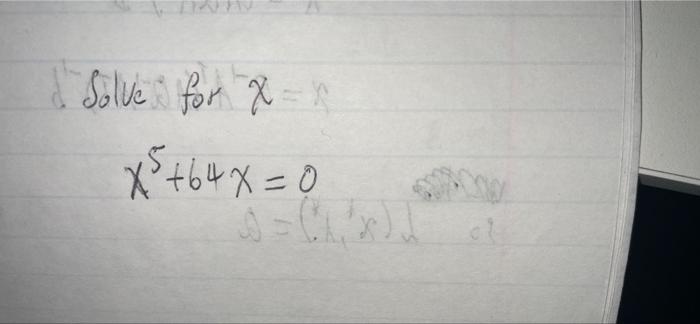 Solve for x
x⁵+64x=0